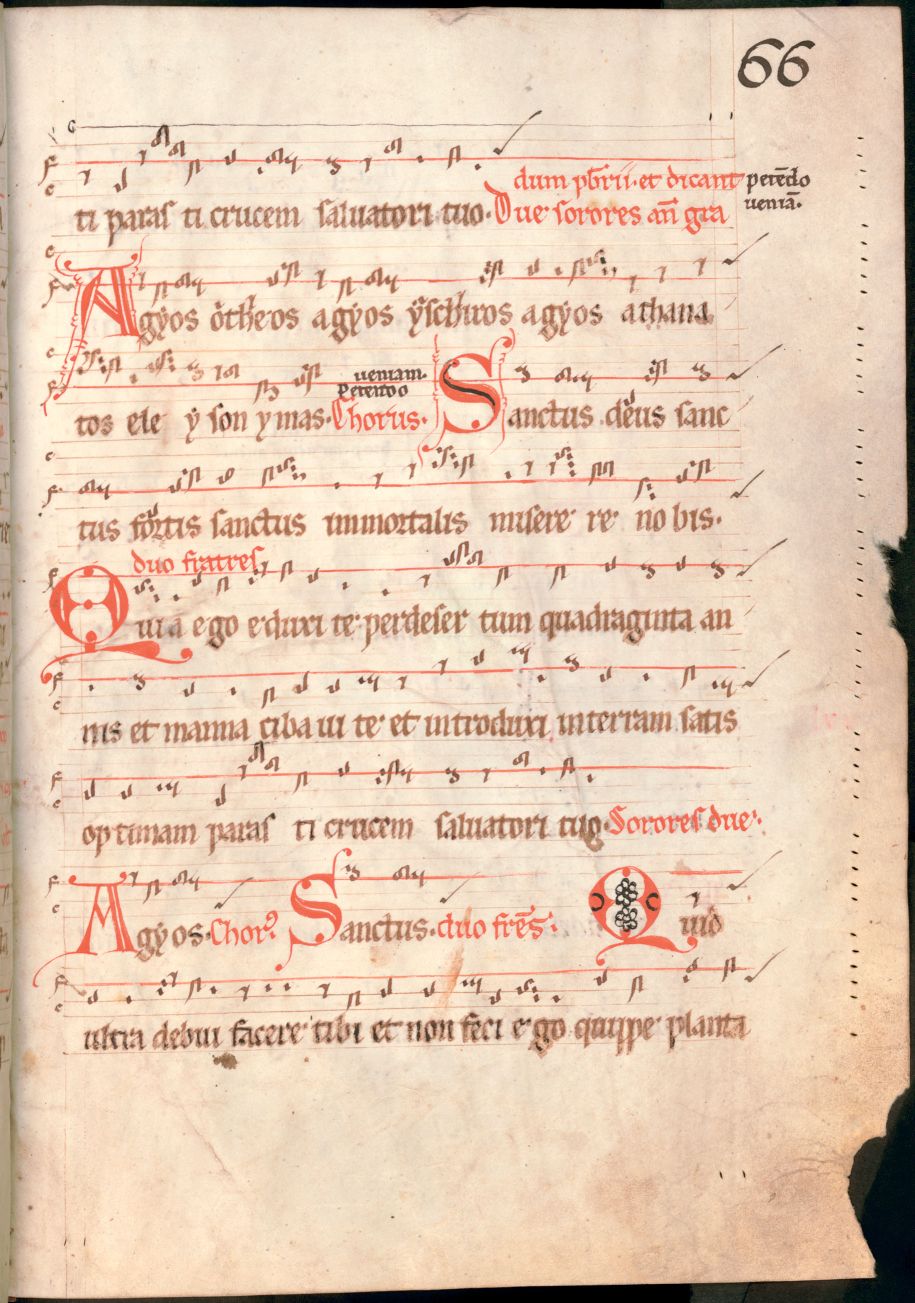 66
dum pbrii. et dicant petēdo
ti paras ti crucem saluatori tuo. Due sorores añ gra ueniā.
Agyos otheos agyos yschiros agyos athana
ueniam.
petendo
tos ele y son ymas. Chorus. Sanctus deus sanc
tus fortis sanctus immortalis misere re no bis.
duo fratres
Quia ego eduxi te per deser tum quadraginta an
nis et manna ciba ui te et introduxi in terram satis
op timam paras ti crucem saluatori tuo. Sorores due.
Agyos. Chor⁹ Sanctus. duo frēs. Quid
ultra debui facere tibi et non feci ego quippe planta